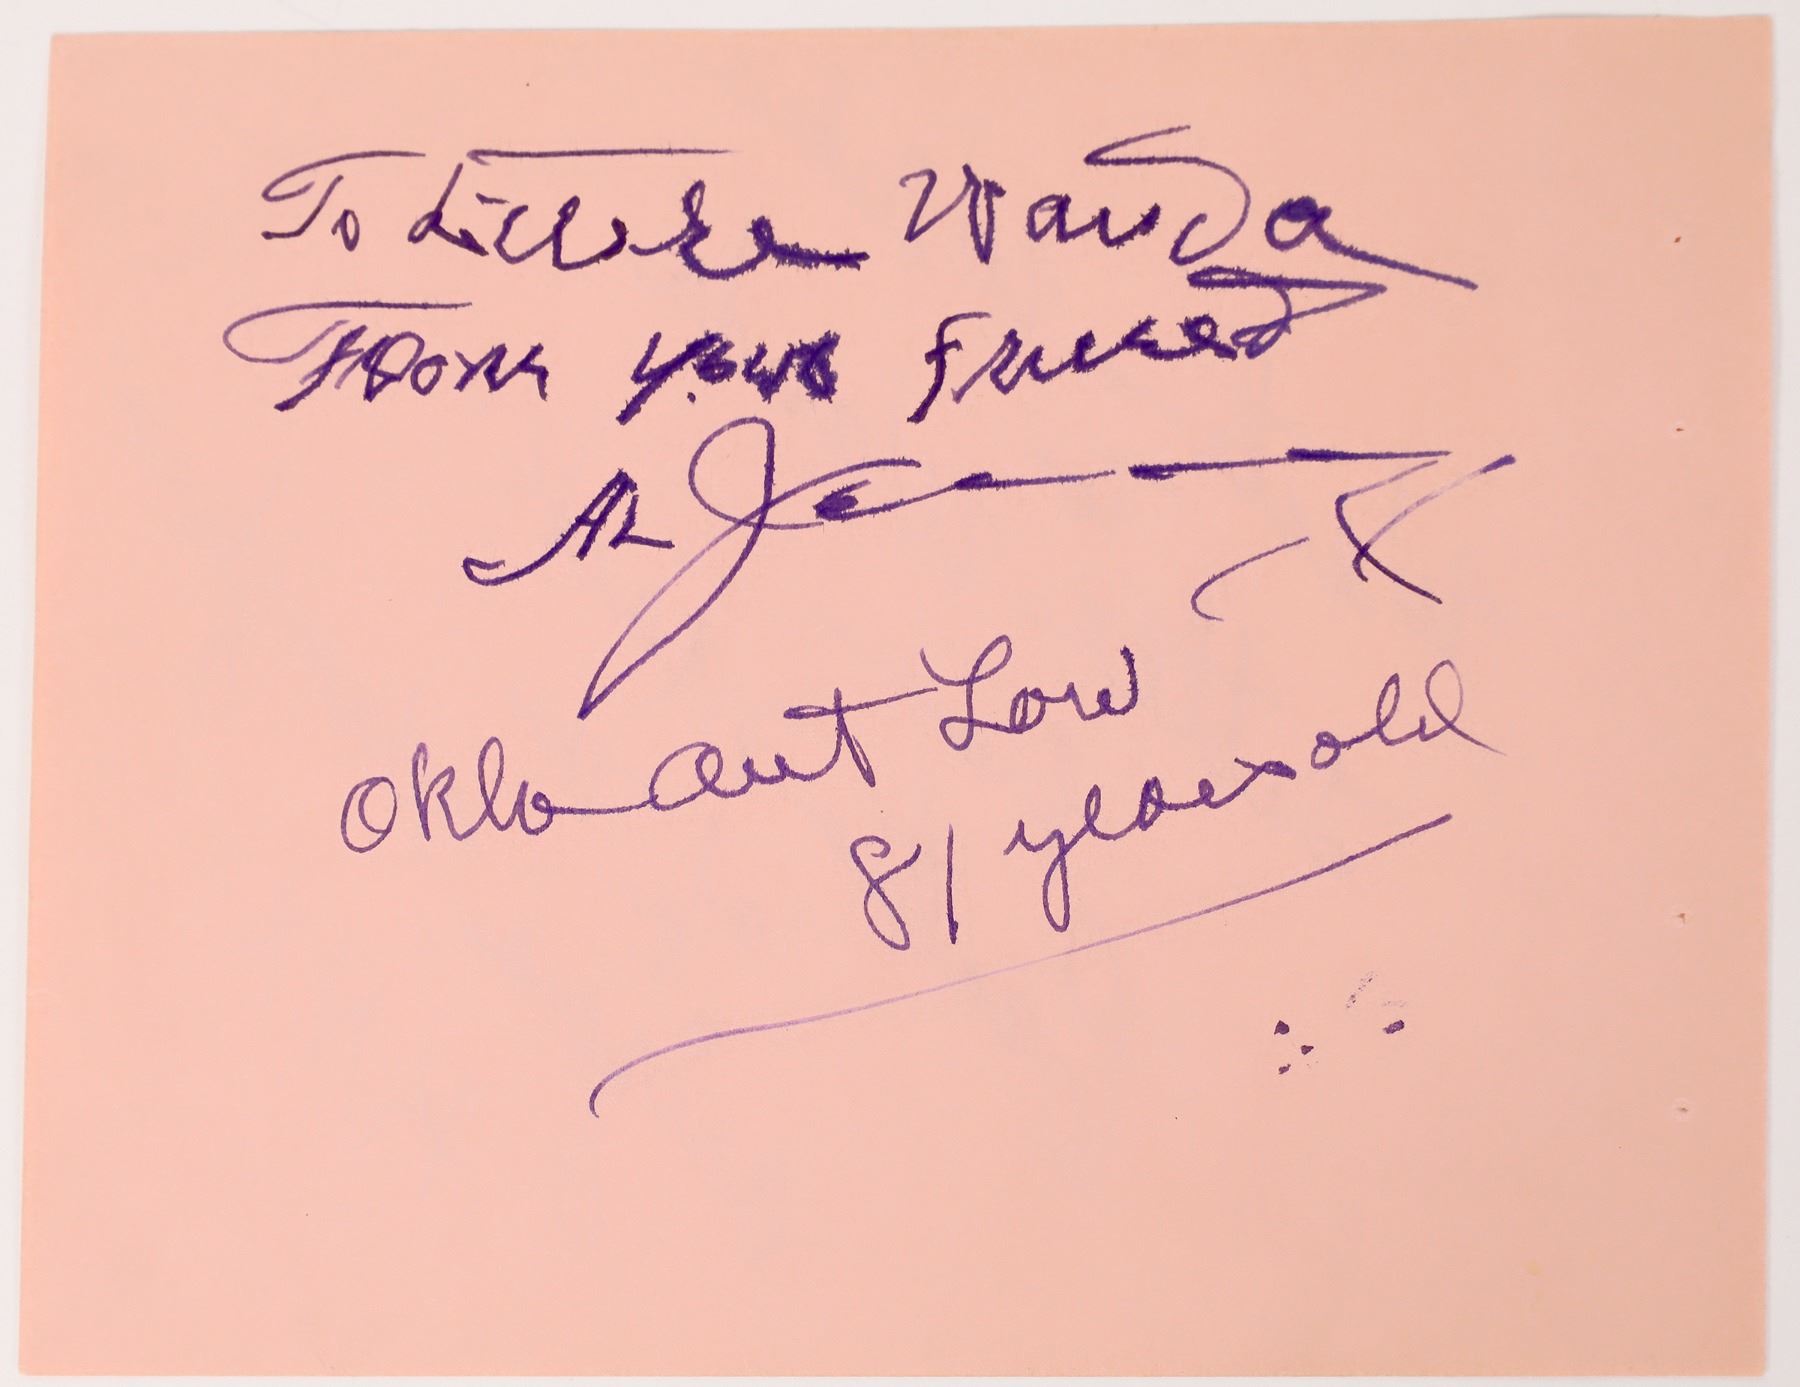 To Little Wanda
From your Friend
Al Jennings
Okla out Low
81 years old